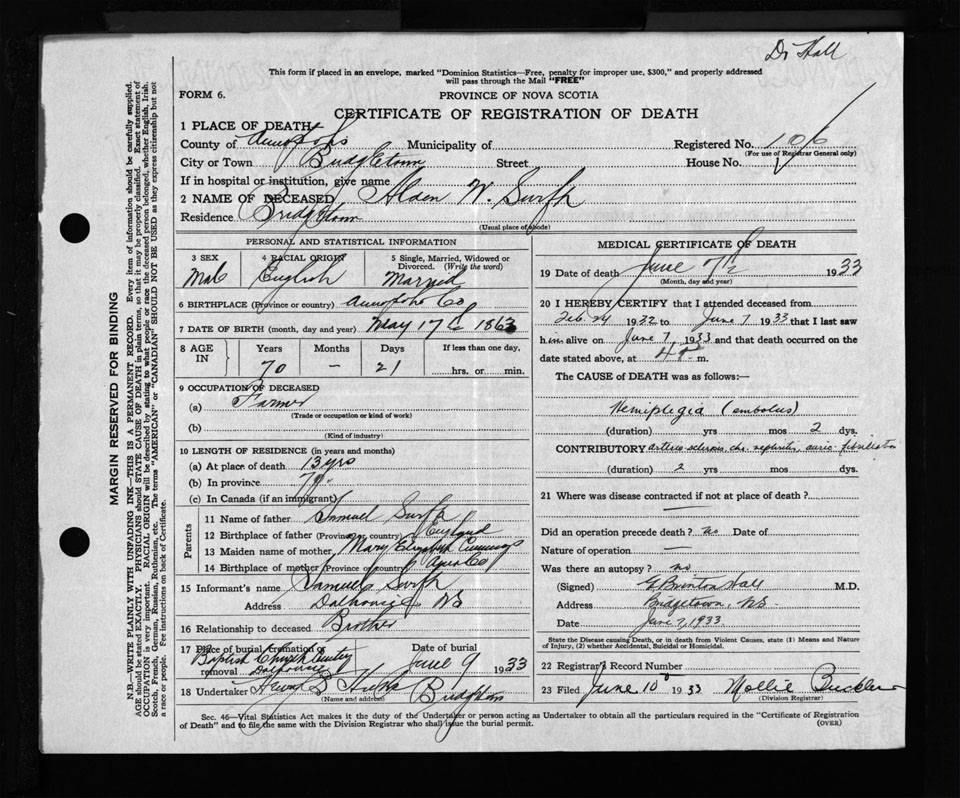 Dr Hall
This form if placed in an envelope, marked "Dominion Statistics—Free, penalty for improper use, $300," and properly addressed
will pass through the Mail "FREE"
FORM 6. PROVINCE OF NOVA SCOTIA
CERTIFICATE OF REGISTRATION OF DEATH
1 PLACE OF DEATH
County of Annapolis Municipality of Registered No. 106
(For use of Registrar General only)
City or Town Bridgetown Street House No.
If in hospital or institution, give name
2 NAME OF DECEASED W.
Residence Bridgetown
(Usual place of abode)
PERSONAL AND STATISTICAL INFORMATION
3 SEX 4 RACIAL ORIGIN 5 Single, Married, Widowed or
Divorced. (Write the word)
Male English Married
6 BIRTHPLACE (Province or country) Annapolis Co
7 DATE OF BIRTH (month, day and year) May 17th 1863
8 AGE IN Years Months Days If less than one day,
70 — 21 hrs. or min.
9 OCCUPATION OF DECEASED
(a) Farmer
(Trade or occupation or kind of work)
(b)
(Kind of industry)
10 LENGTH OF RESIDENCE (in years and months)
(a) At place of death 13 yrs
(b) In province 70
(c) In Canada (if an immigrant)
Parents
11 Name of father Samuel
12 Birthplace of father (Province or country) England
13 Maiden name of mother Mary Elizabeth Cummings
14 Birthplace of mother (Province or country) Co
15 Informant's name Samuel
Address Dalhousie NS
16 Relationship to deceased Brother
17 Place of burial, cremation or removal Date of burial
Baptist Church Dalhousie June 9 1933
18 Undertaker Bridgetown
(Name and address)
MEDICAL CERTIFICATE OF DEATH
19 Date of death June 7th 1933
(Month, day and year)
20 I HEREBY CERTIFY that I attended deceased from
Feb. 24 1932 to June 7 1933 that I last saw
him alive on June 7, 1933 and that death occurred on the
date stated above, at 4 m.
The CAUSE of DEATH was as follows:—
Hemiplegia (embolus)
(duration) yrs mos 2 dys.
CONTRIBUTORY arterio sclerosis, chr. nephritis, auric. fibrillation
(duration) 2 yrs mos dys.
21 Where was disease contracted if not at place of death?
—
Did an operation precede death? no Date of
Nature of operation —
Was there an autopsy? no
(Signed) G. Brinton Hall M.D.
Address Bridgetown, N.S.
Date June 7, 1933.
State the Disease causing Death, or in death from Violent Causes, state (1) Means and Nature
of Injury, (2) whether Accidental, Suicidal or Homicidal.
22 Registrar's Record Number
23 Filed June 10 1933 Mollie Buckler
(Division Registrar)
Sec. 46—Vital Statistics Act makes it the duty of the Undertaker or person acting as Undertaker to obtain all the particulars required in the "Certificate of Registration
of Death" and to file the same with the Division Registrar who shall issue the burial permit. (OVER)
MARGIN RESERVED FOR BINDING
N.B.—WRITE PLAINLY WITH UNFADING INK—THIS IS A PERMANENT RECORD. Every item of information should be carefully supplied.
AGE should be stated EXACTLY. PHYSICIANS should STATE CAUSE OF DEATH in plain terms, so that it may be properly classified. Exact statement of
OCCUPATION is very important. RACIAL ORIGIN will be described by stating to what people or race the deceased person belonged, whether English, Irish,
Scotch, French, German, Russian, Ruthenian, etc. The terms "AMERICAN" or "CANADIAN" SHOULD NOT BE USED as they express citizenship but not
a race or people. Fee instructions on back of Certificate.